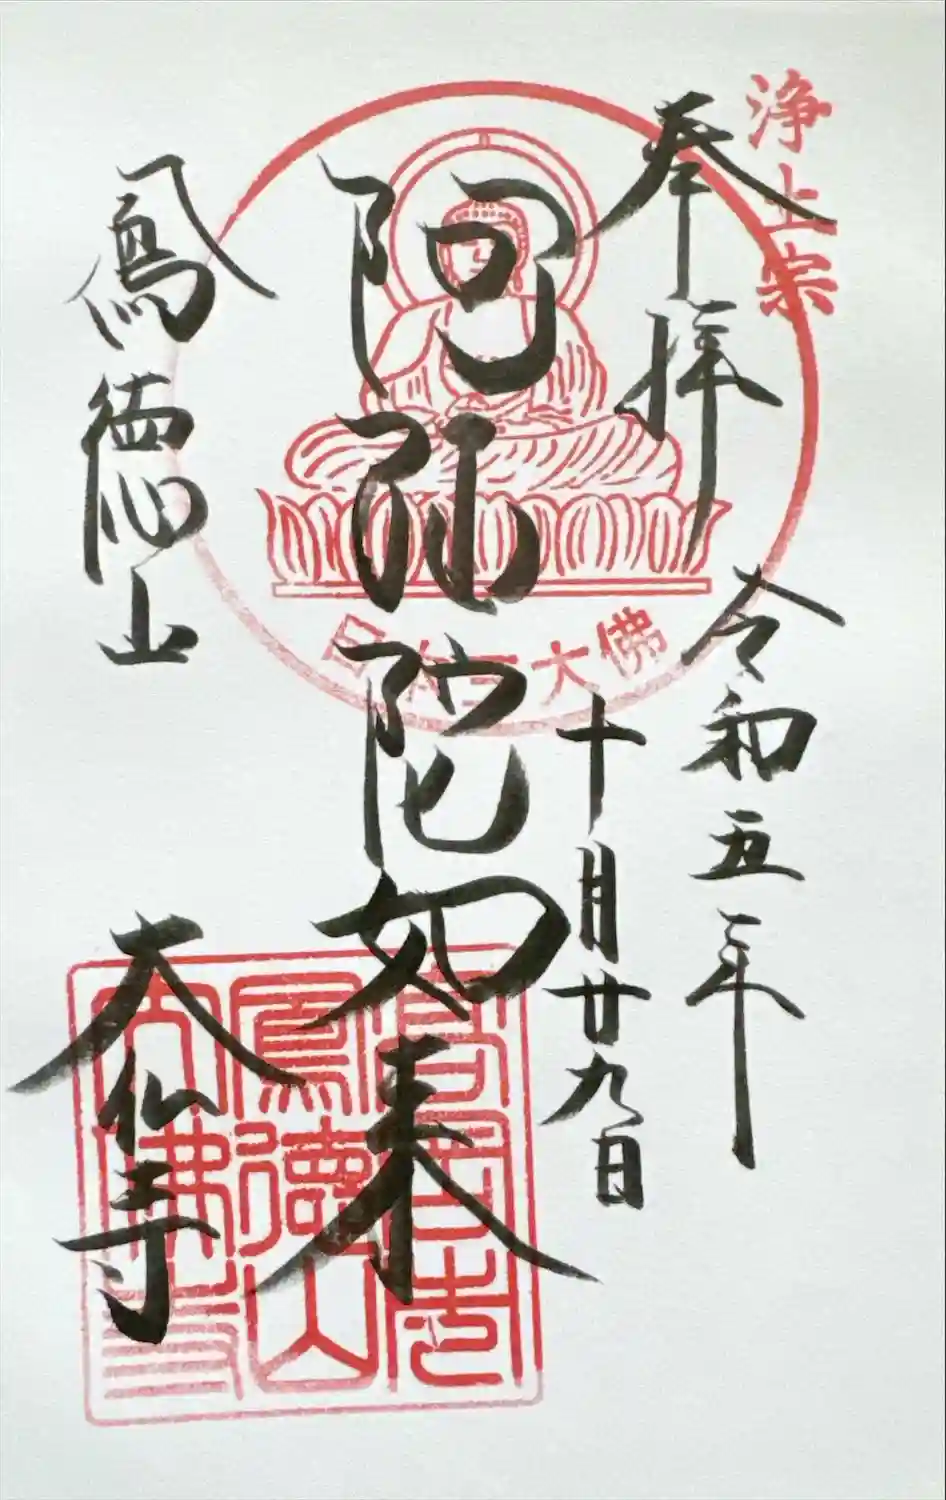 浄土宗
奉拝
令和五年
十月廿九日
阿弥陀如来
日本三大佛
鳳徳山
大仏寺
高岡市
鳳德山
大佛寺